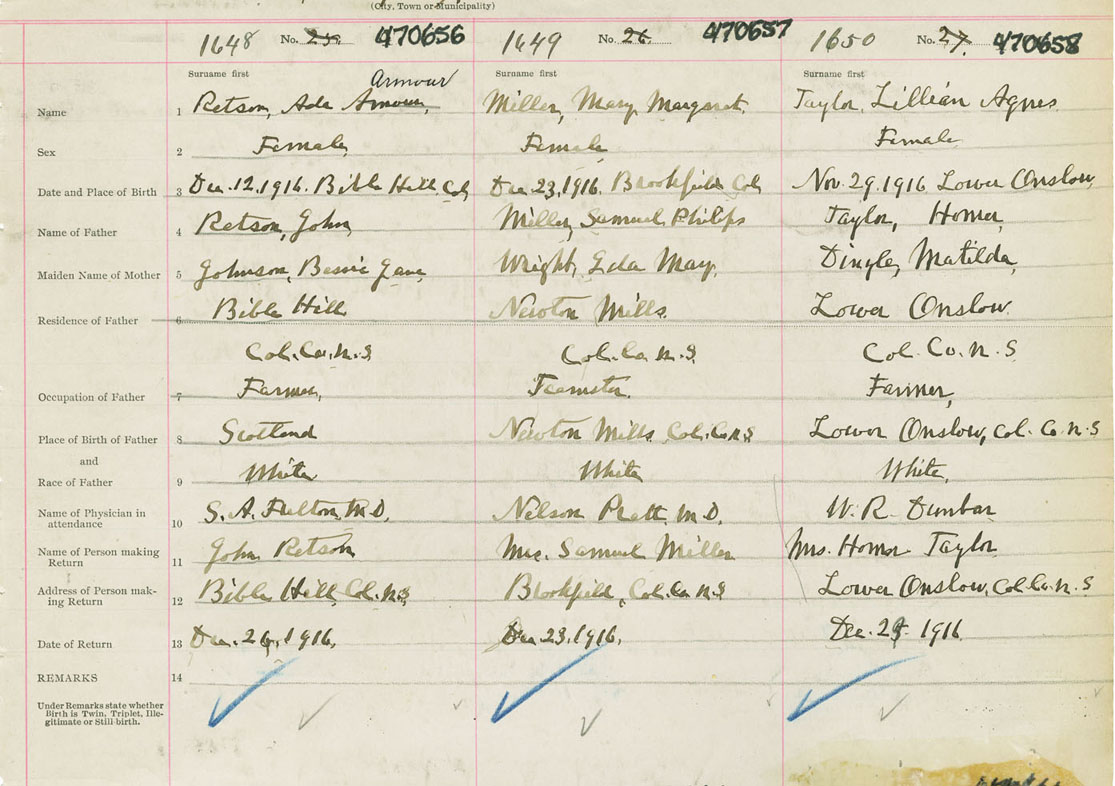 (City, Town or Municipality)
1648 No. 25. 470656 1649 No. 26. 470657 1650 No. 27. 470658
Surname first Surname first Surname first
Armour
Name 1 Retson, Ada Armour, Miller, Mary Margaret Taylor, Lillian Agnes
Sex 2 Female, Female Female
Date and Place of Birth 3 Dec. 12, 1916. Bible Hill Col Dec 23, 1916. Brookfield Col Nov. 29. 1916 Lower Onslow,
Name of Father 4 Retson, John, Miller, Samuel Philips Taylor, Homer,
Maiden Name of Mother 5 Johnson, Bessie Jane, Wright, Eda May, Dingle, Matilda,
Residence of Father 6 Bible Hill Newton Mills. Lower Onslow.
Col. Co. N.S Col. Co. N.S. Col. Co. N. S
Occupation of Father 7 Farmer, Teamster. Farmer,
Place of Birth of Father 8 Scotland Newton Mills, Col. Co. N.S Lower Onslow, Col. Co. N.S
and
Race of Father 9 White White White,
Name of Physician in
attendance 10 S. A. Fulton, M.D. Nelson Pratt, M.D. W. R. Dunbar
Name of Person making
Return 11 John Retson Mrs. Samuel Miller Mrs. Homer Taylor
Address of Person mak-
ing Return 12 Bible Hill, Col. N.S, Brookfield, Col. Co. N.S Lower Onslow, Col. Co. N. S
Date of Return 13 Dec. 26, 1916, Dec 23, 1916, Dec. 29. 1916
REMARKS 14
Under Remarks state whether
Birth is Twin, Triplet, Ille-
gitimate or Still-birth.